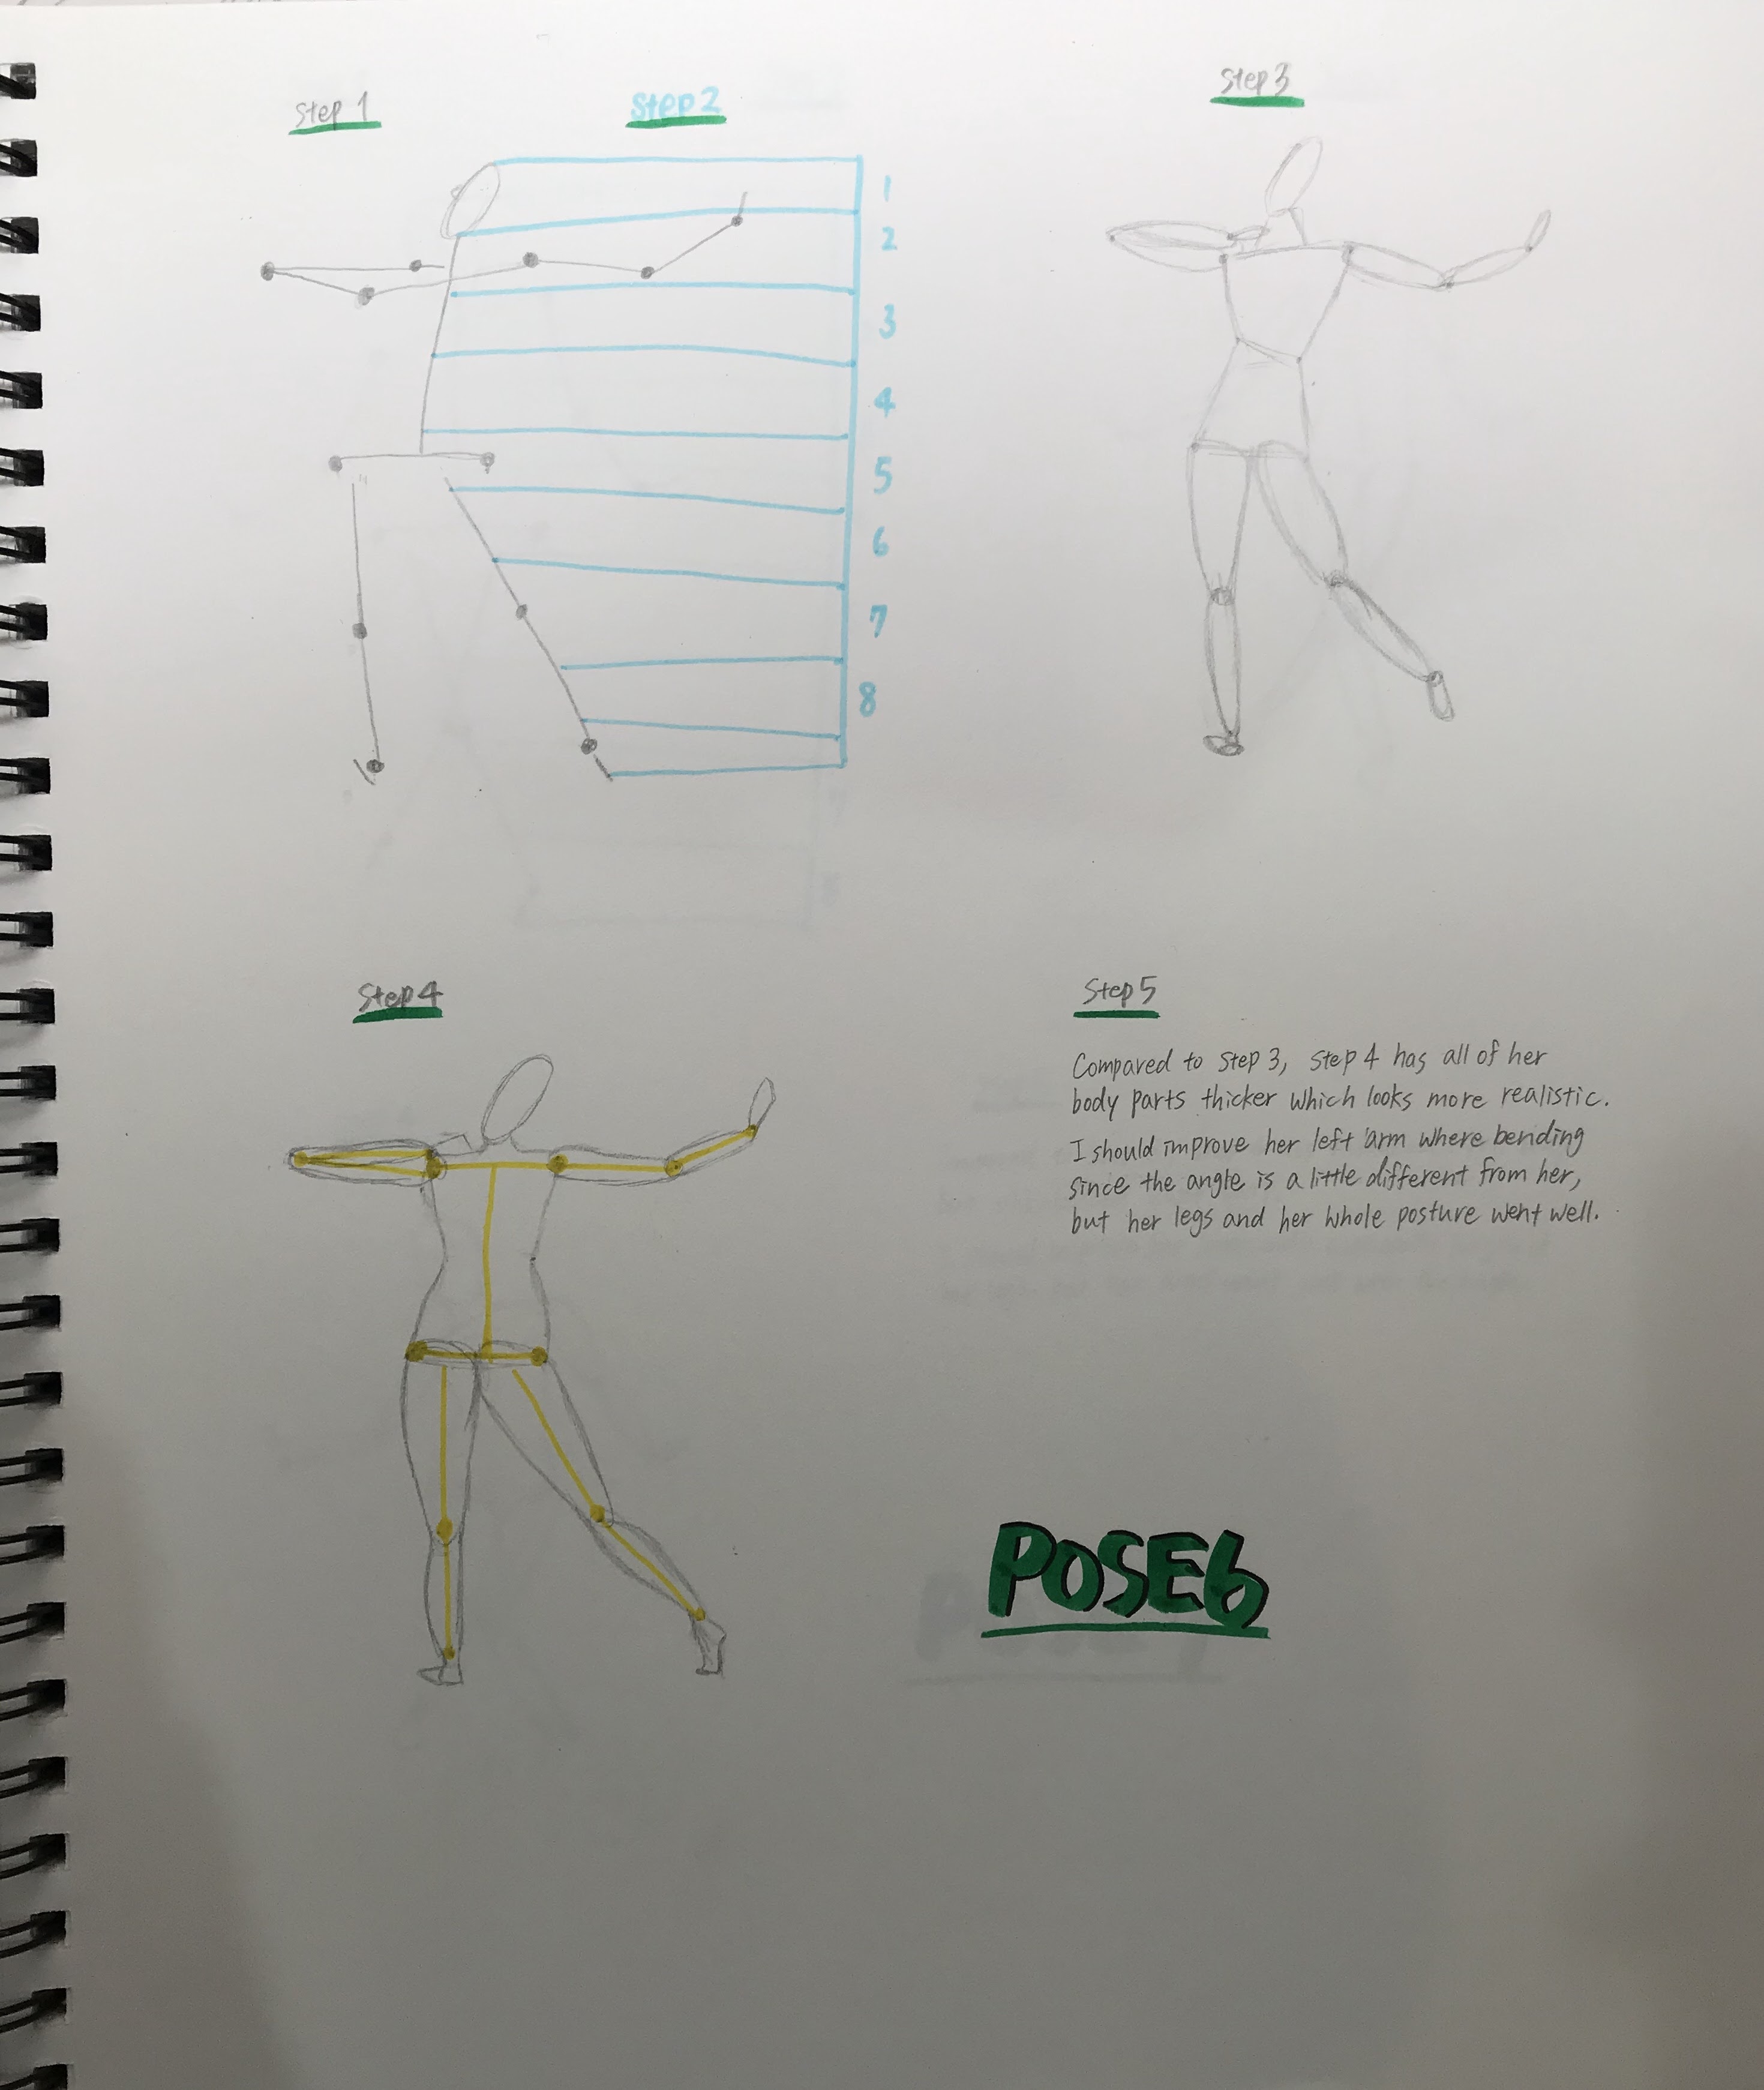 Step 1
Step 2
Step 3
1
2
3
4
5
6
7
8
Step 4
Step 5
Compared to step 3, step 4 has all of her
body parts thicker which looks more realistic.
I should improve her left arm where bending
since the angle is a little different from her,
but her legs and her whole posture went well.
POSE6